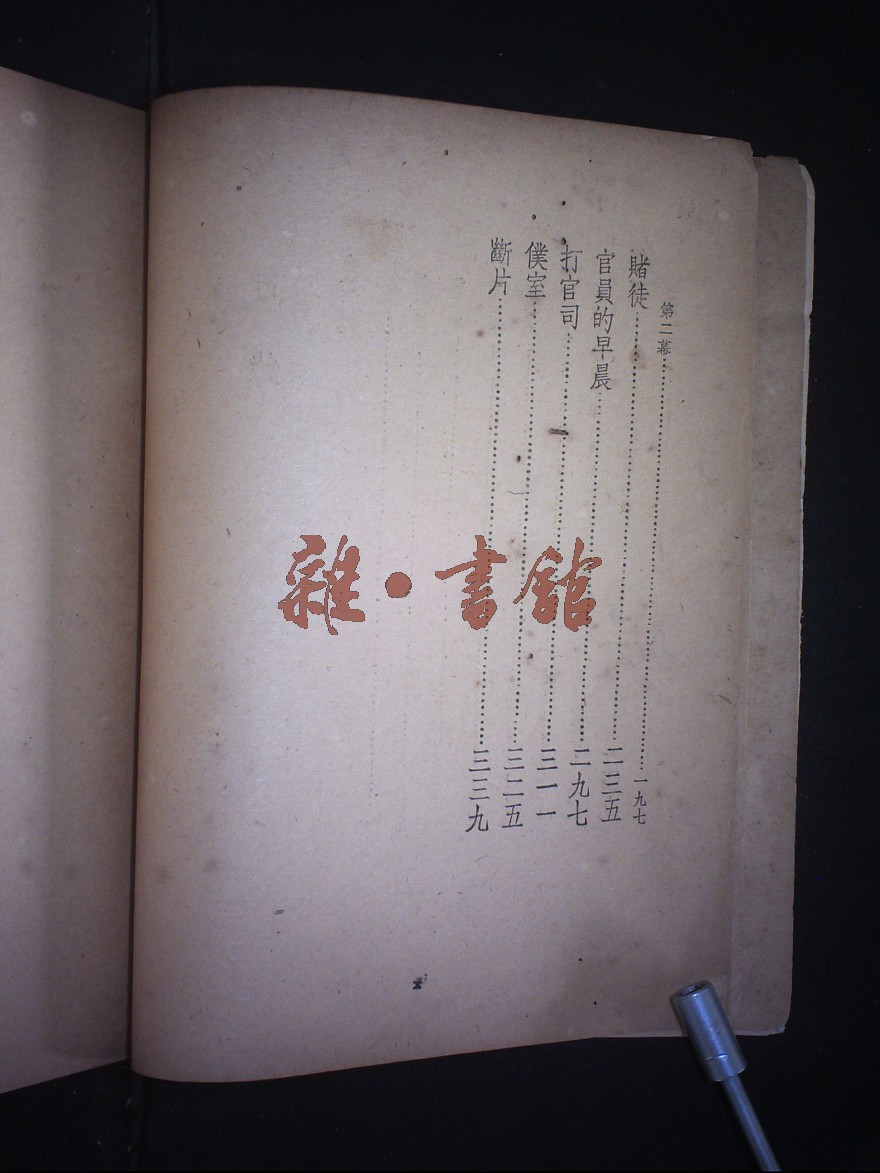 第二幕……一九七
賭徒……二三五
官員的早晨……二九七
打官司……三一一
僕室……三二五
斷片……三三九
雜·書館